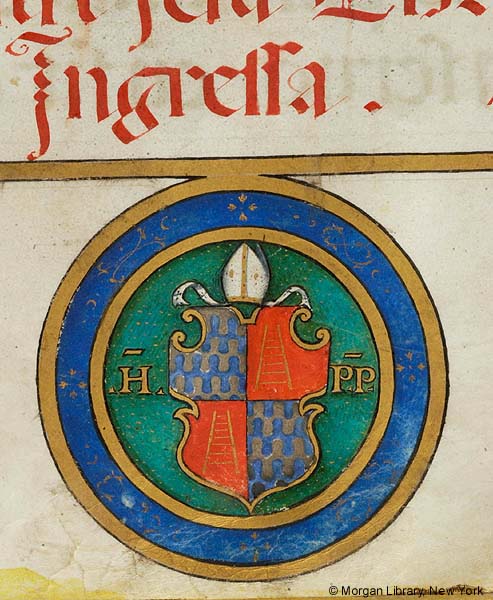 Ingressa .
.H̄. P̄P̄
© Morgan Library, New York